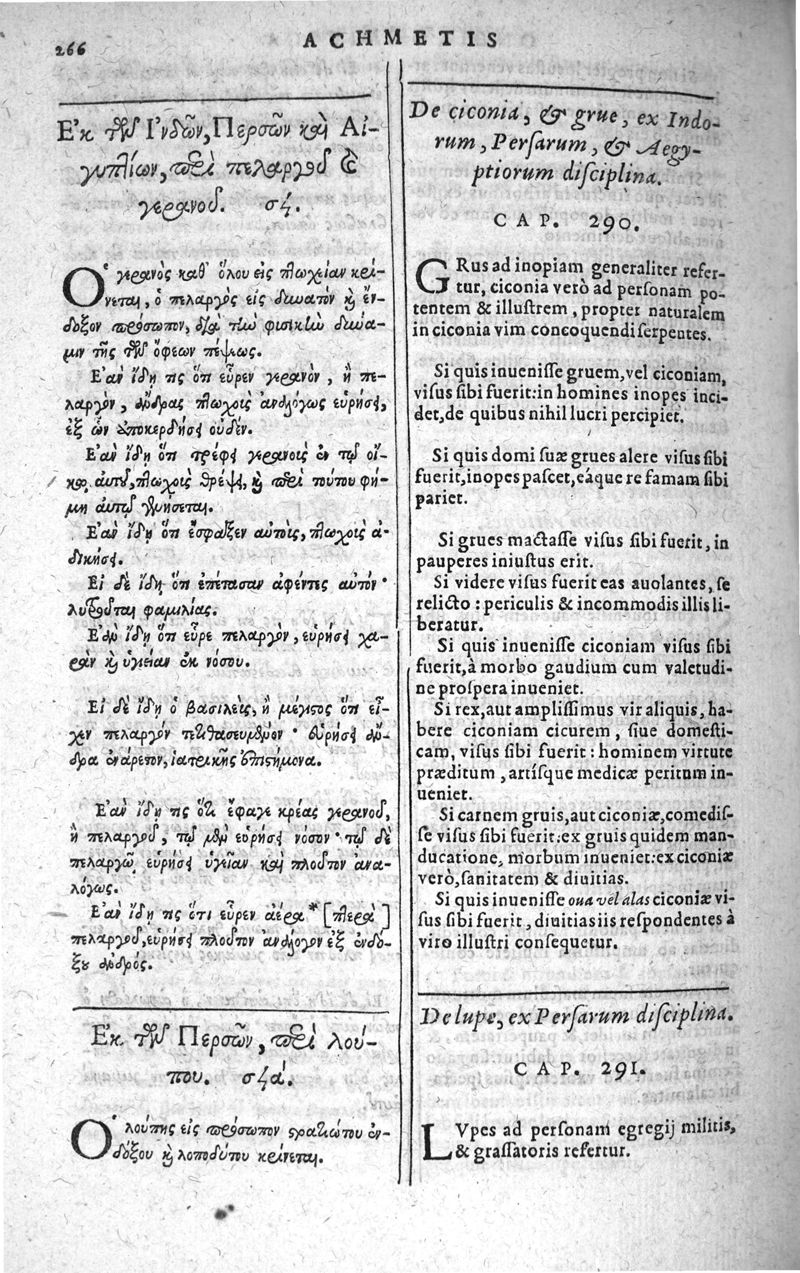 266
ACHMETIS
Ἐκ τῶν Ἰνδῶν, Περσῶν καὶ Αἰ-
γυπτίων, περὶ πελαργοῦ &
γεράνου. σϟ.
Ὁ γερανὸς καθ' ὅλου εἰς πτωχείαν κρί-
νεται, ὁ πελαργὸς εἰς δυνατὸν καὶ ἔν-
δοξον πρόσωπον, διὰ τὴν φισικὴν δύνα-
μιν τῆς τῶν ὄφεων πέψεως.
Ἐὰν ἴδῃ τις ὅτι εὗρεν γερανὸν, ἢ πε-
λαργὸν, ἄνδρας πτωχοὺς ἀναλόγως εὑρήσει,
ἐξ ὧν ἀποκερδήσει οὐδέν.
Ἐὰν ἴδῃ ὅτι τρέφει γερανοὺς ἐν τῷ οἴ-
κῳ αὐτοῦ, πτωχοὺς θρέψει, καὶ περὶ τούτου φή-
μη αὐτῷ γενήσεται.
Ἐὰν ἴδῃ ὅτι ἔσφαξεν αὐτοὺς, πτωχοὺς ἀ-
δικήσει.
Εἰ δὲ ἴδῃ ὅτι ἐπέτασαν ἀφέντες αὐτὸν·
λυτροῦται φαμιλίας.
Ἐὰν ἴδῃ ὅτι εὗρε πελαργὸν, εὑρήσει χα-
ρὰν καὶ ὑγιείαν ἐκ νόσου.
Εἰ δὲ ἴδῃ ὁ βασιλεὺς, ἢ μέγιστος ὅτι εἶ-
χεν πελαργὸν τετιθασευμένον· εὑρήσει ἄν-
δρα ἐνάρετον, ἰατρικῆς ἐπιστήμονα.
Ἐὰν ἴδῃ τις ὅτι ἔφαγε κρέας γερανοῦ,
ἢ πελαργοῦ, τῷ μὲν εὑρήσει νόσον· τῷ δὲ
πελαργῷ εὑρήσει ὑγιείαν καὶ πλοῦτον ἀνα-
λόγως.
Ἐὰν ἴδῃ τις ὅτι εὗρεν ἀέρα * [πτερὰ]
πελαργοῦ, εὑρήσει πλοῦτον ἀνάλογον ἐξ ἐνδό-
ξου ἀνδρός.
Ἐκ τῶν Περσῶν, περὶ λού-
που. σϟά.
Ὁ λούπης εἰς πρόσωπον στρατιώτου ἐν-
δόξου καὶ λοποδύτου κρίνεται.
De ciconia, & grue, ex Indo-
rum, Persarum, & Aegy-
ptiorum disciplina.
CAP. 290.
GRus ad inopiam generaliter refer-
tur, ciconia verò ad personam po-
tentem & illustrem, propter naturalem
in ciconia vim concoquendi serpentes.
Si quis inuenisse gruem, vel ciconiam,
visus sibi fuerit: in homines inopes inci-
det, de quibus nihil lucri percipiet.
Si quis domi suæ grues alere visus sibi
fuerit, inopes pascet, eáque re famam sibi
pariet.
Si grues mactasse visus sibi fuerit, in
pauperes iniustus erit.
Si videre visus fuerit eas auolantes, se
relicto: periculis & incommodis illis li-
beratur.
Si quis inuenisse ciconiam visus sibi
fuerit, à morbo gaudium cum valetudi-
ne prospera inueniet.
Si rex, aut amplissimus vir aliquis, ha-
bere ciconiam cicurem, siue domesti-
cam, visus sibi fuerit: hominem virtute
præditum, artisque medicæ peritum in-
ueniet.
Si carnem gruis, aut ciconiæ, comedis-
se visus sibi fuerit: ex gruis quidem man-
ducatione, morbum inueniet: ex ciconiæ
verò, sanitatem & diuitias.
Si quis inuenisse oua vel alas ciconiæ vi-
sus sibi fuerit, diuitias iis respondentes à
viro illustri consequetur.
De lupe, ex Persarum disciplina.
CAP. 291.
LVpes ad personam egregij militis,
& grassatoris refertur.